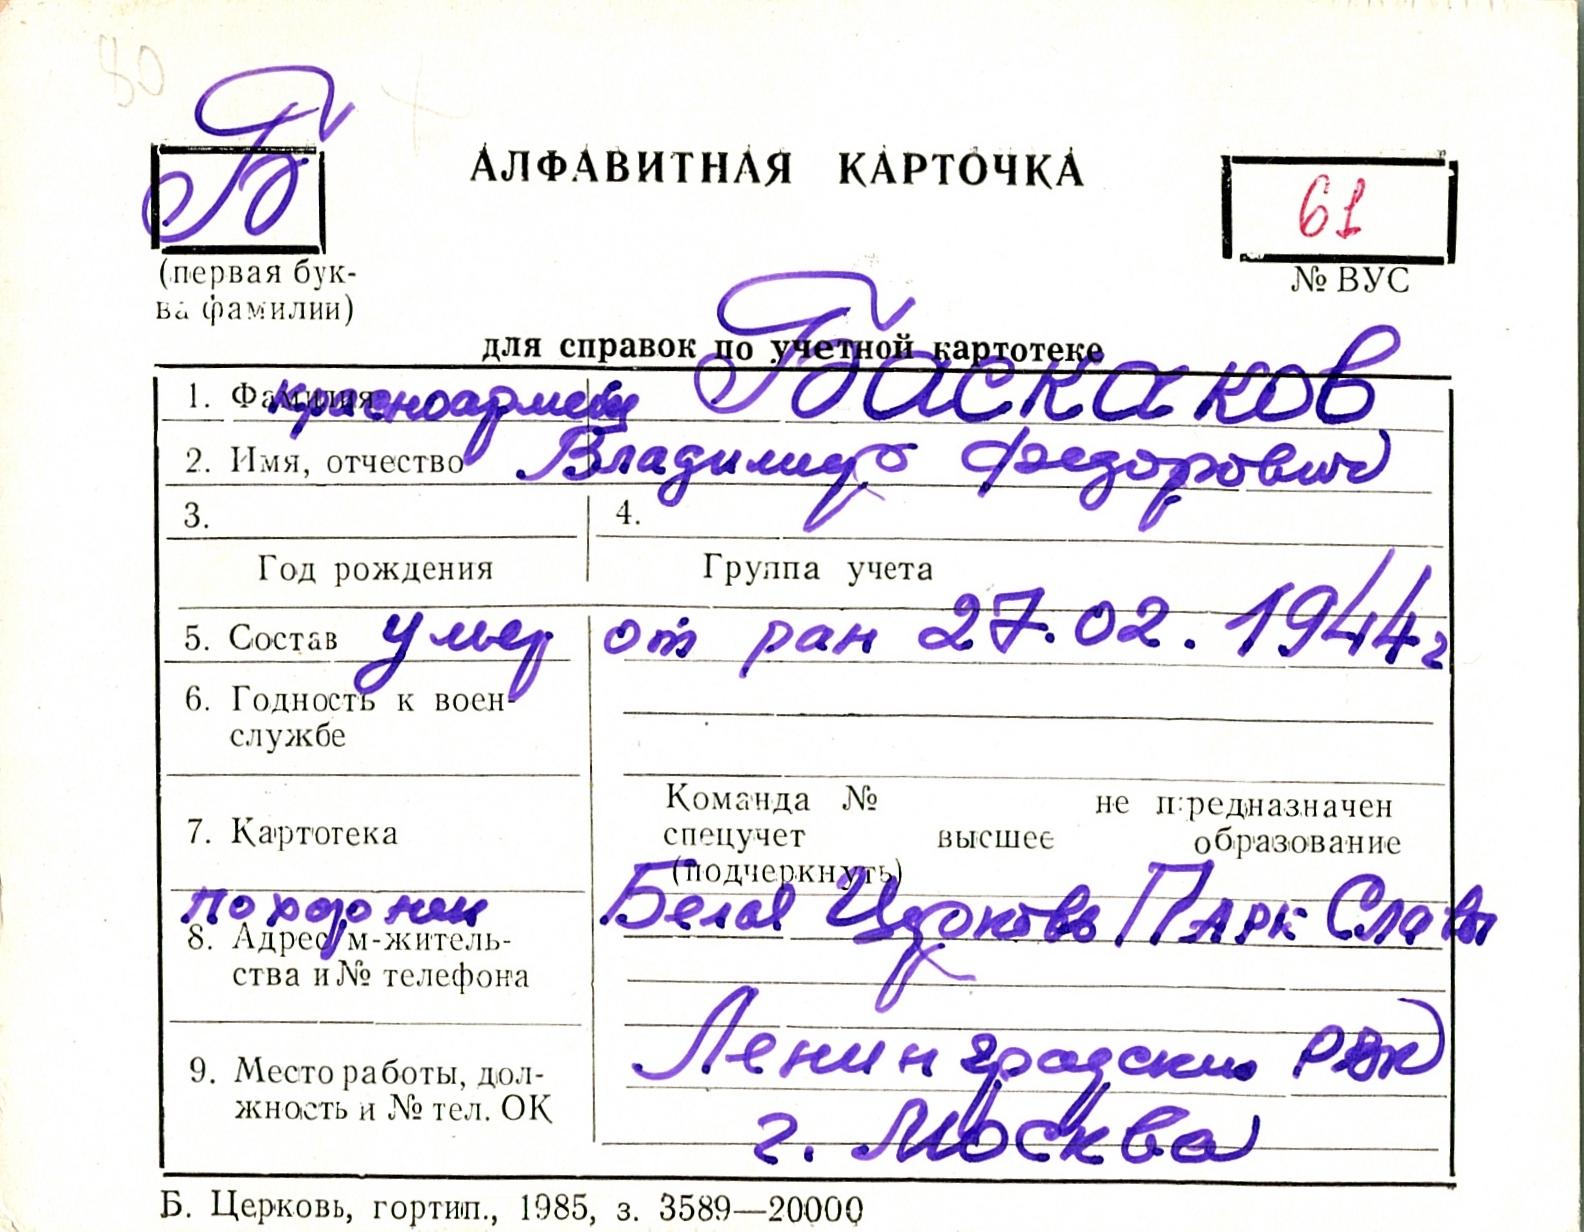 80
Б
АЛФАВИТНАЯ КАРТОЧКА
61
(первая бук-
ва фамилии)
№ ВУС
для справок по учетной картотеке
1. Фамилия красноармеец Баскаков
2. Имя, отчество Владимир Федорович
3. 4.
Год рождения Группа учета
5. Состав умер от ран 27.02.1944г
6. Годность к воен-
службе
Команда № не предназначен
7. Картотека спецучет высшее образование
(подчеркнуть)
похоронен Белая Церковь Парк Славы
8. Адрес м-житель-
ства и № телефона
Ленинградским РВК
9. Место работы, дол-
жность и № тел. ОК
г. Москва
Б. Церковь, гортип., 1985, з. 3589—20000